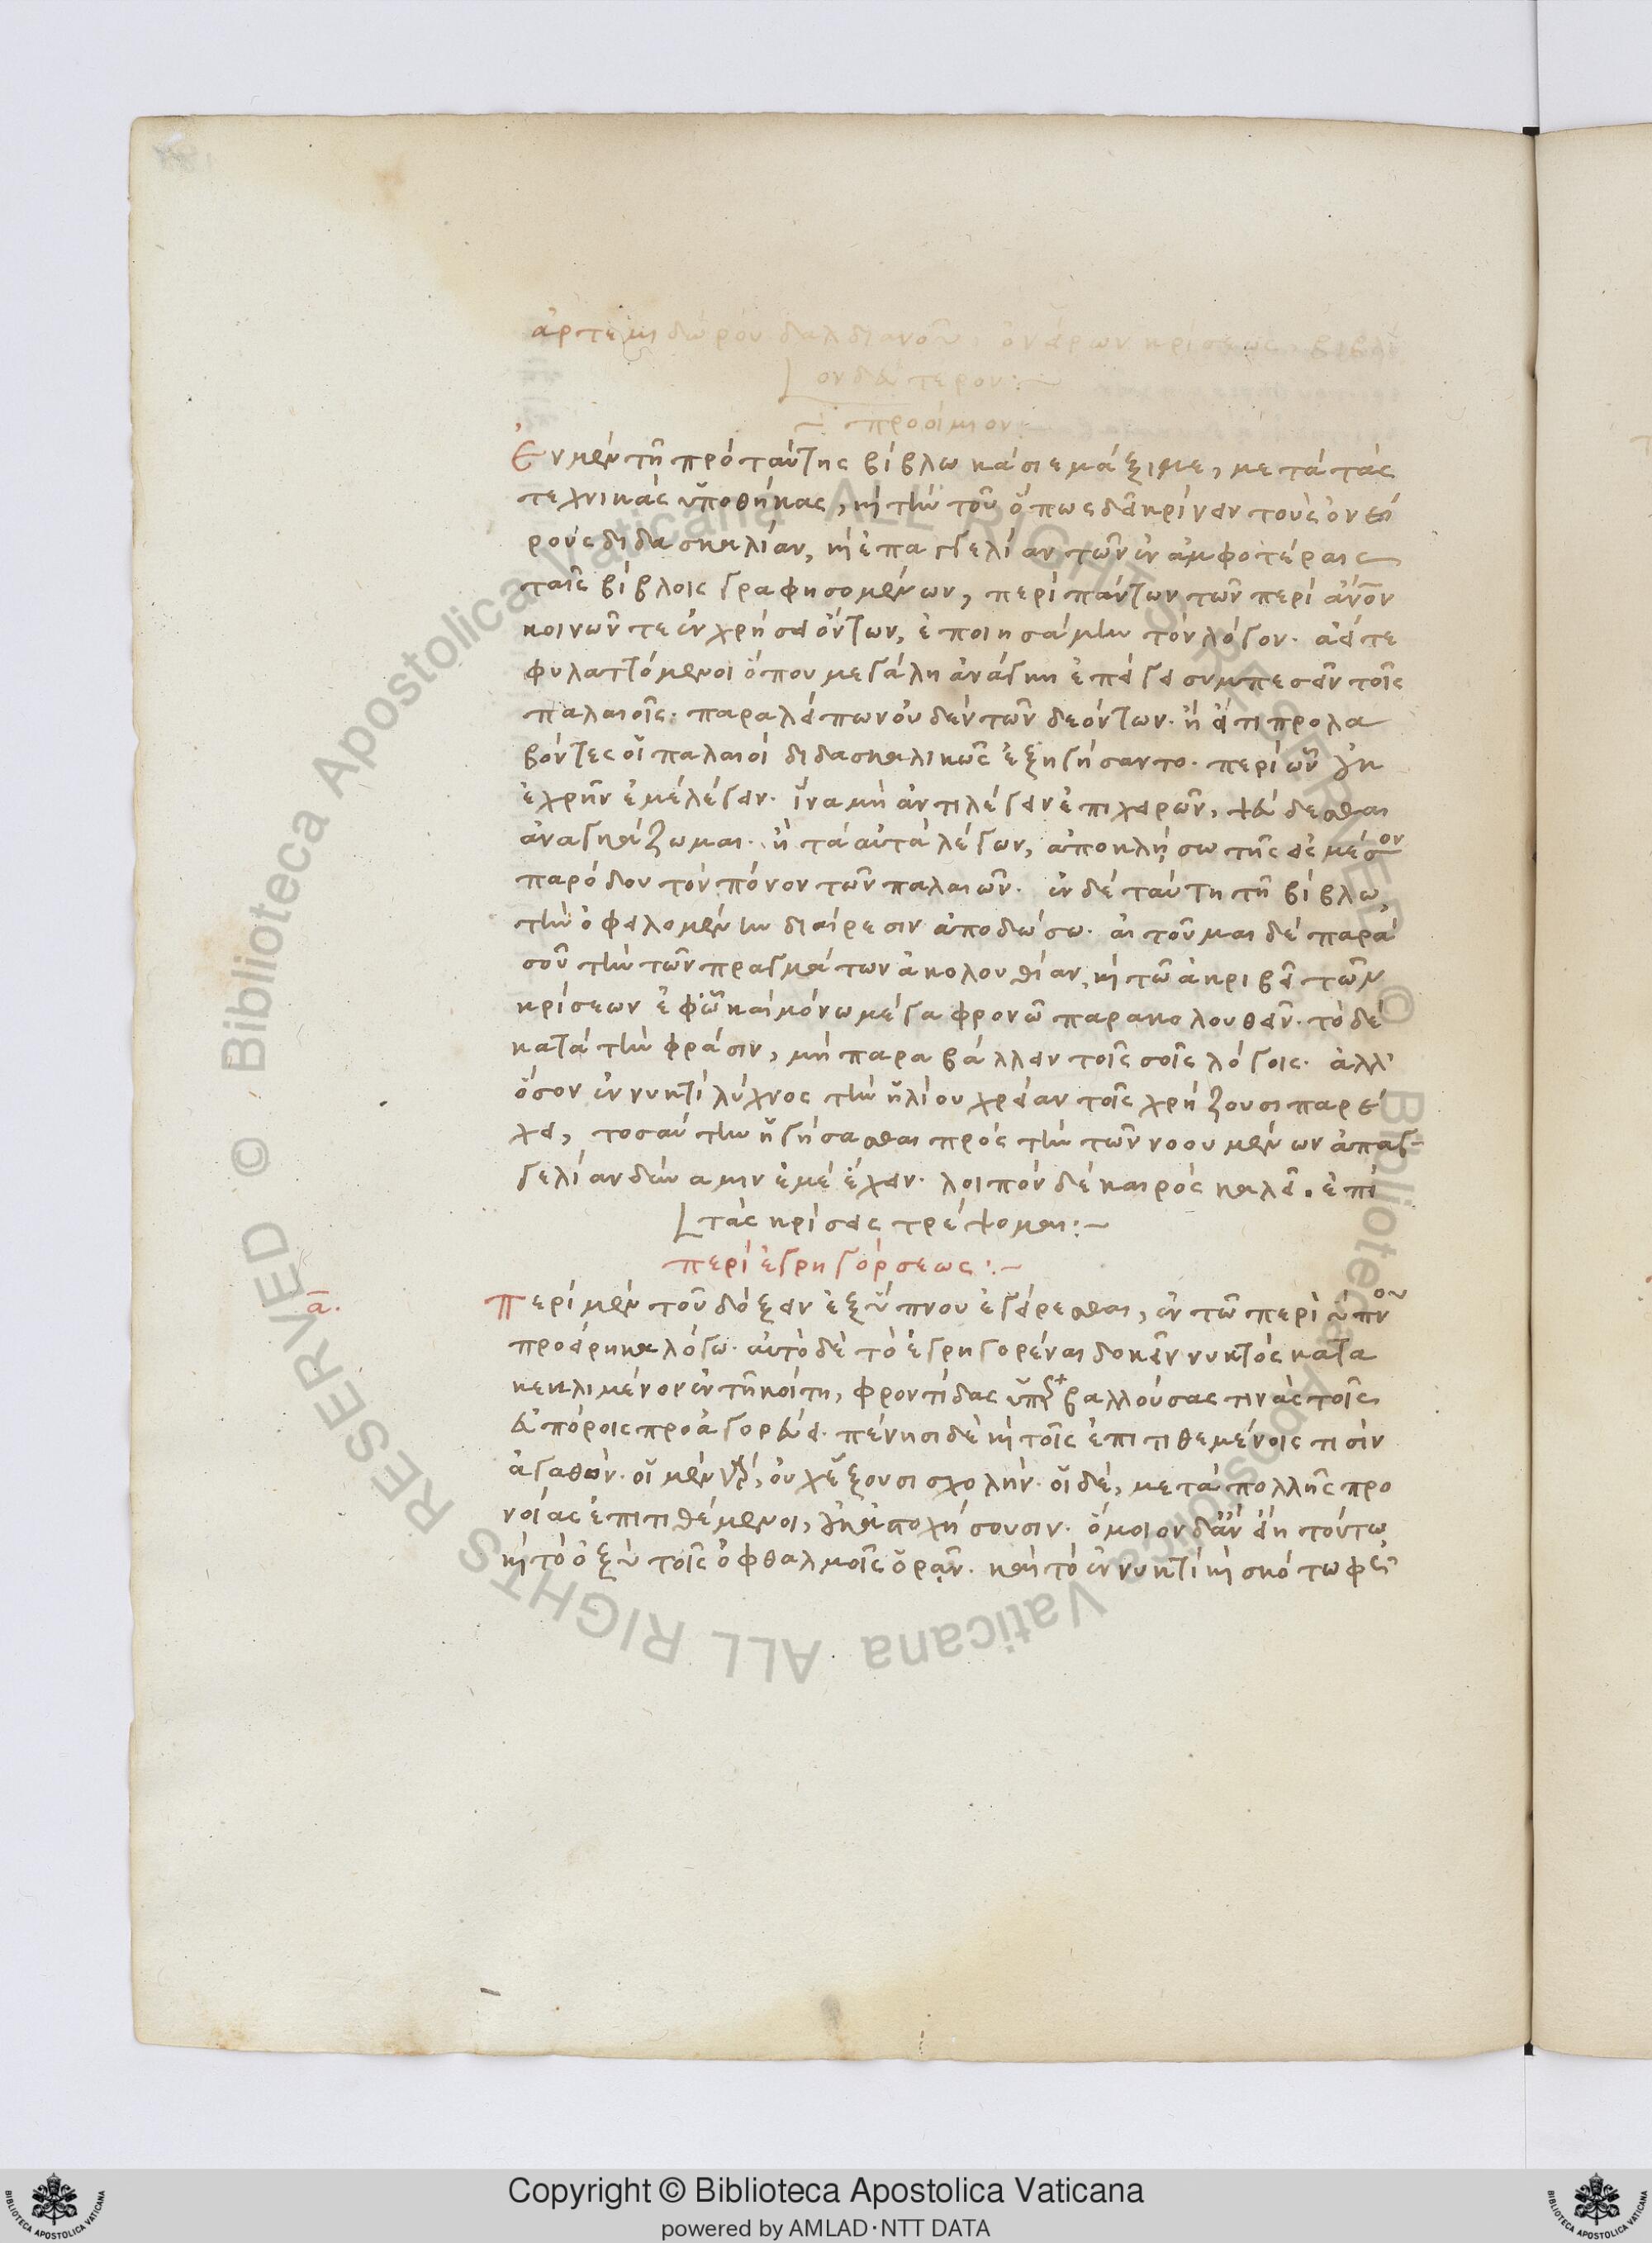 ἀρτεμιδώρου δαλδιανοῦ, ὀνείρων κρίσεως, βιβλί
ον δεύτερον:~
~ προοίμιον:~
Ἐν μὲν τῆ πρὸ ταύτης βίβλω κάσιε μάξιμε, μετὰ τὰς
τεχνικὰς ὑποθήκας, κὴ τὴν τοῦ ὅπως δεῖ κρίνειν τοὺς ὀνεί
ρους διδασκαλίαν, κὴ ἐπαγγελίαν τῶν ἐν ἀμφοτέραις
ταῖς βίβλοις γραφησομένων, περὶ πάντων τῶν περὶ ἀνον
κοινῶν τε ἐν χρήσει ὄντων, ἐποιησάμην τὸν λόγον. ἀεί τε
φυλαττόμενοι ὅπου μεγάλη ἀνάγκη ἐπείγει συμπεσεῖν τοῖς
παλαιοῖς. παραλείπων οὐδὲν τῶν δεόντων. ἢ εἴ τι προλα
βόντες οἱ παλαιοὶ διδασκαλικῶς ἐξηγήσαντο. περὶ ὧν οὐκ
ἐχρῆν ἐμὲ λέγειν. ἵνα μὴ ἀντιλέγειν ἐπιχειρῶν, ψεύδεσθαι
ἀναγκάζωμαι. ἢ τὰ αὐτὰ λέγων, ἀποκλήσω τῆς εἰς μέσον
παρόδου τὸν πόνον τῶν παλαιῶν. ἐν δὲ ταύτη τῆ βίβλω,
τὴν ὀφειλομένην διαίρεσιν ἀποδώσω. αἰτοῦμαι δὲ παρὰ
σοῦ τὴν τῶν πραγμάτων ἀκολουθίαν, κὴ τῶ ἀκριβεῖ τῶν
κρίσεων ἐφ ὧ καὶ μόνω μέγα φρονῶ παρακολουθεῖν. τὸ δὲ
κατὰ τὴν φράσιν, μὴ παραβάλλειν τοῖς σοῖς λόγοις. ἀλλ'
ὅσον ἐν νυκτὶ λύχνος τὴν ἡλίου χρείαν τοῖς χρήζουσι παρέ
χει, τοσαύτην ἡγήσασθαι πρὸς τὴν τῶν νοουμένων ἀπαγ-
γελίαν δύναμιν ἐμὲ ἔχειν. λοιπὸν δὲ καιρὸς καλεῖ. ἐπὶ
τὰς κρίσεις τρέψομαι:~
περὶ ἐγρηγόρσεως:~
ᾱ. Περὶ μὲν τοῦ δόξειν ἐξ ὕπνου ἐγείρεσθαι, ἐν τῶ περὶ ὕπνου
προείρηκα λόγω. αὐτὸ δὲ τὸ ἐγρηγορέναι δοκεῖν νυκτὸς κατα
κεκλιμένον ἐν τῆ κοίτη, φροντίδας ὑπερβαλλούσας τινὰς τοῖς
εὐπόροις προαγορεύει. πένησι δὲ κὴ τοῖς ἐπιτιθεμένοις τισὶν
ἀγαθόν. οἱ μὲν γὰρ, οὐχ ἕξουσι σχολήν. οἱ δὲ, μετὰ πολλῆς προ
νοίας ἐπιτιθέμενοι, οὐκ ἀποτύχήσουσιν. ὅμοιον δ' ἂν εἴη τούτω
κὴ τὸ ὀξὺ τοῖς ὀφθαλμοῖς ὁρᾶν. καὶ τὸ ἐν νυκτὶ κὴ σκότω φέ